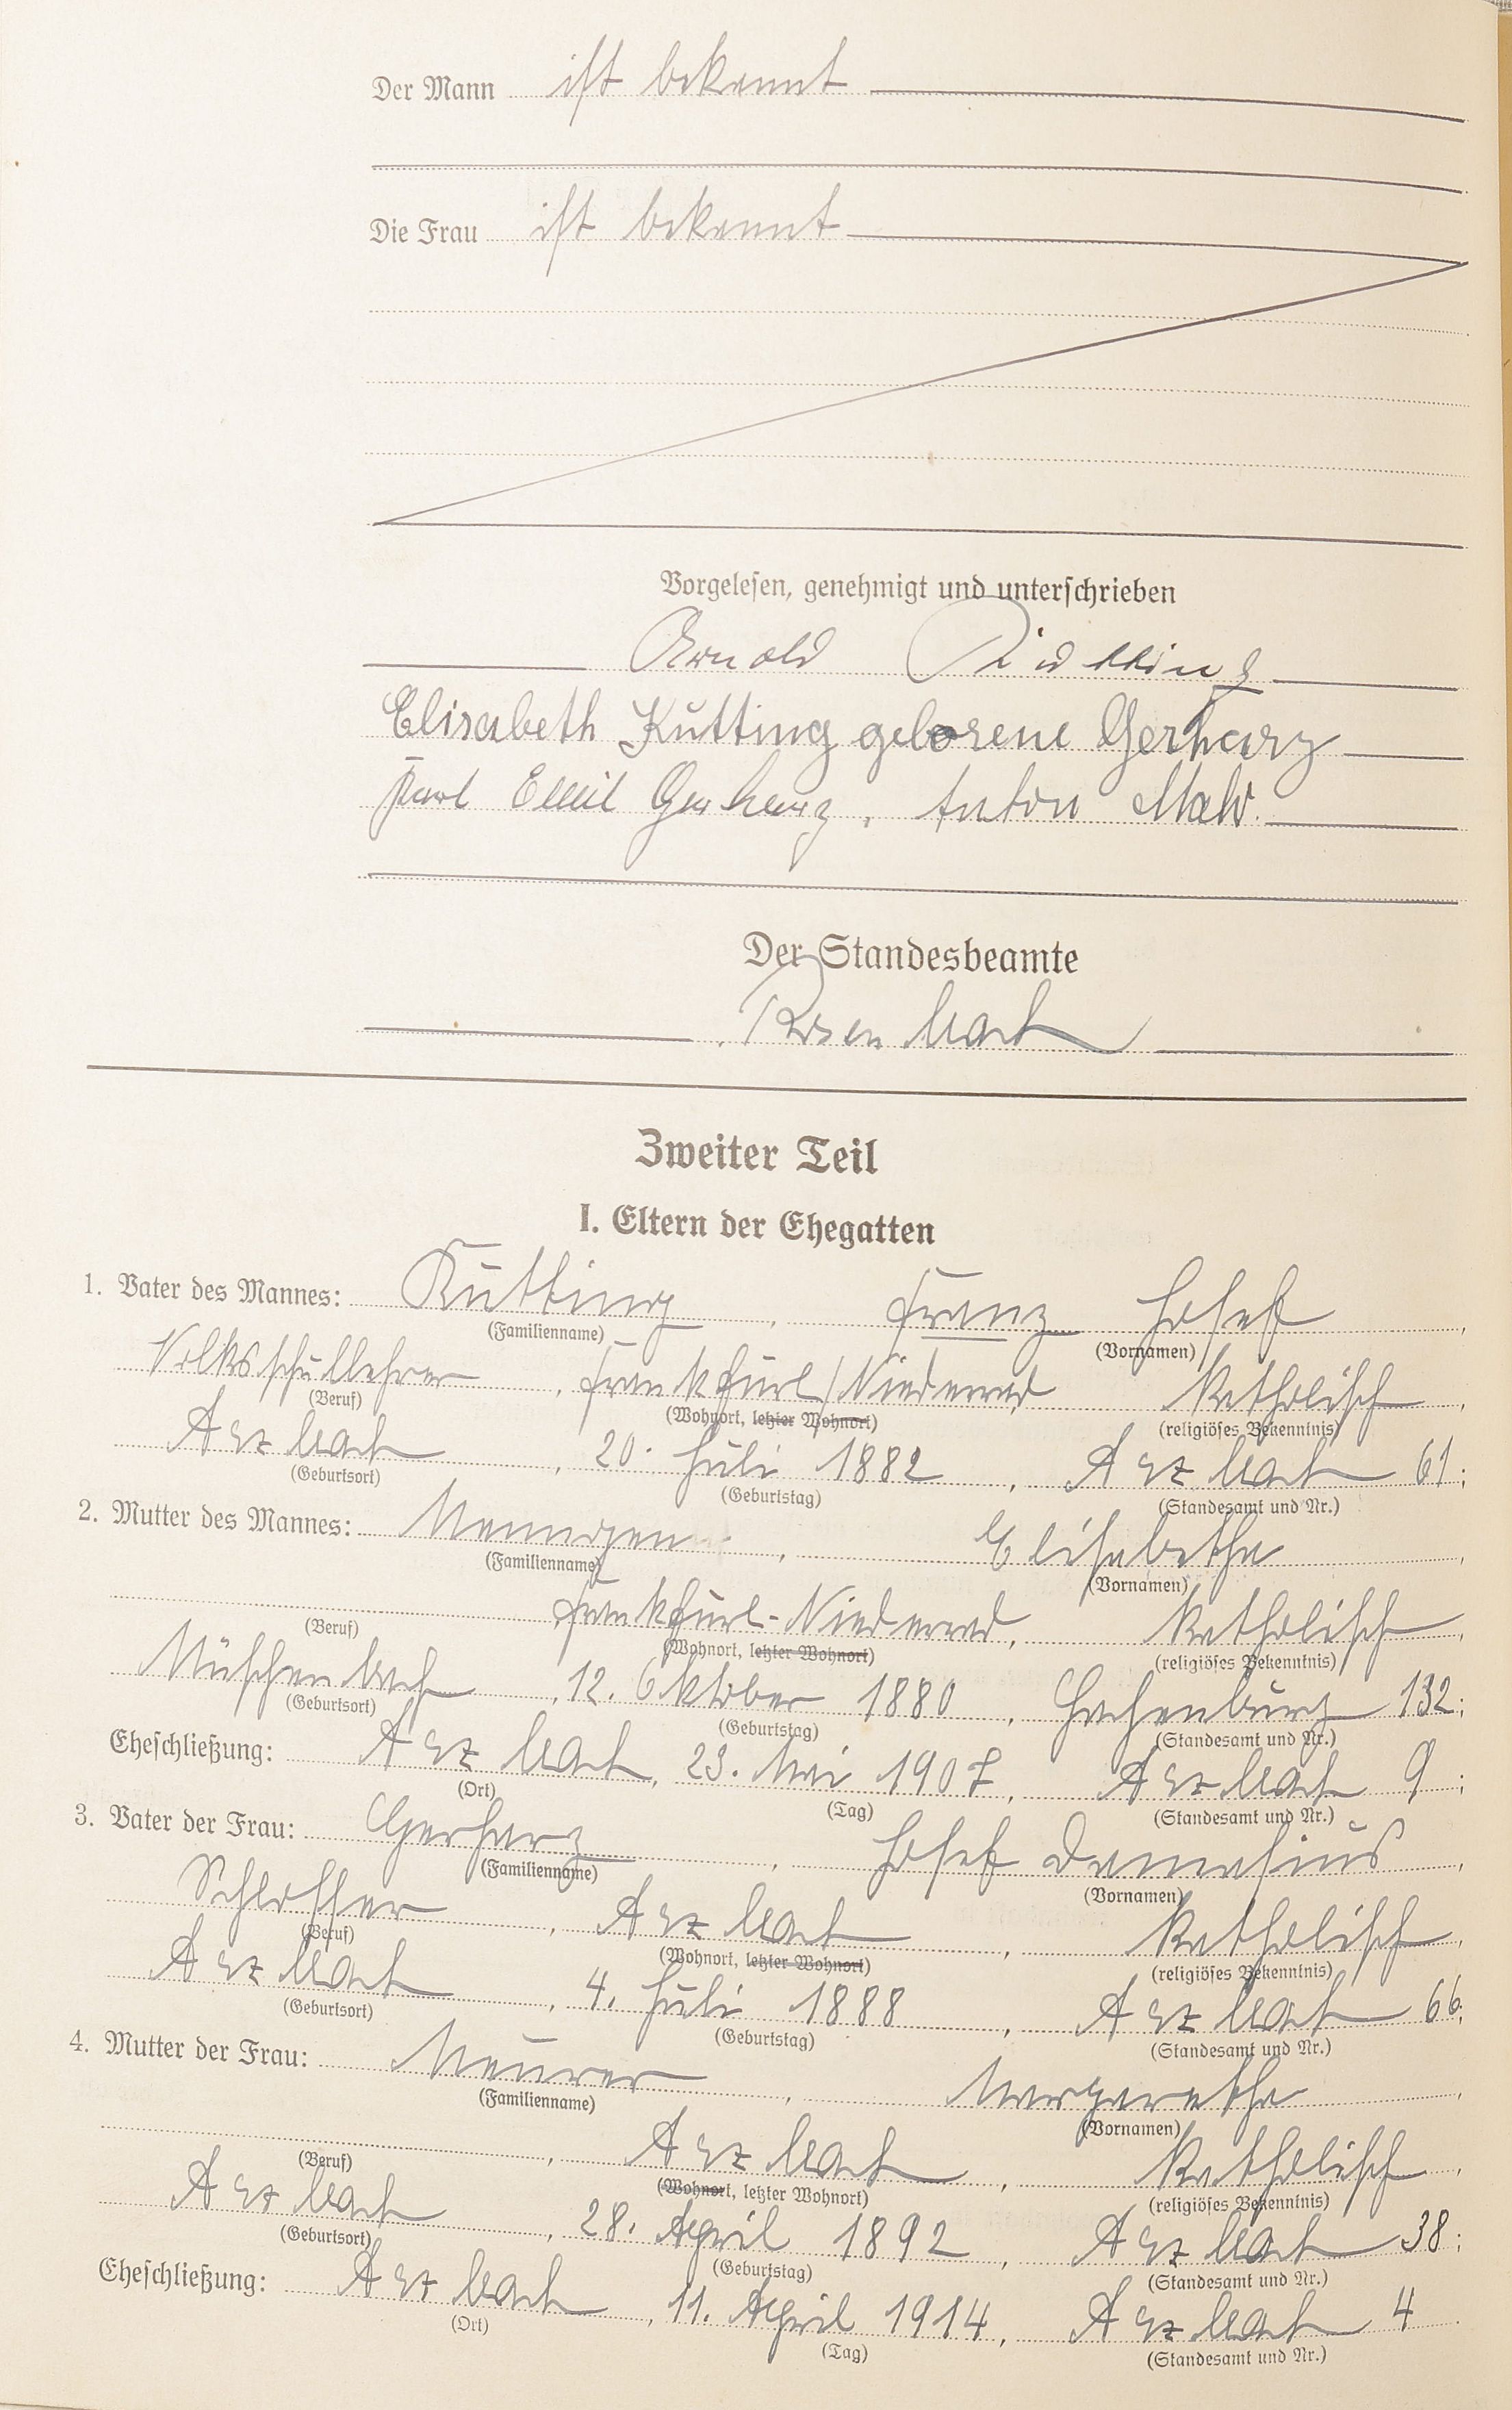 Der Mann ist bekannt
Die Frau ist bekannt
Vorgelesen, genehmigt und unterschrieben
Arnold Kütting
Elisabeth Kütting geborene Gerharz
Emil Gerharz, Anton
Der Standesbeamte
Rosenbach
Zweiter Teil
I. Eltern der Ehegatten
1. Vater des Mannes: Kütting, Franz Josef,
(Familienname) (Vornamen)
Volksschullehrer, Frankfurt/Niederrad katholisch,
(Beruf) (Wohnort, letzter Wohnort) (religiöses Bekenntnis)
Arzbach, 20. Juli 1882, Arzbach 61;
(Geburtsort) (Geburtstag) (Standesamt und Nr.)
2. Mutter des Mannes: Menngen, Elisabetha,
(Familienname) (Vornamen)
Frankfurt-Niederrad, katholisch,
(Beruf) (Wohnort, letzter Wohnort) (religiöses Bekenntnis)
Müschenbach, 12. Oktober 1880, Hachenburg 132;
(Geburtsort) (Geburtstag) (Standesamt und Nr.)
Eheschließung: Arzbach, 23. Mai 1907, Arzbach 9;
(Ort) (Tag) (Standesamt und Nr.)
3. Vater der Frau: Gerharz, Josef Damasius,
(Familienname) (Vornamen)
Schlosser, Arzbach, katholisch,
(Beruf) (Wohnort, letzter Wohnort) (religiöses Bekenntnis)
Arzbach, 4. Juli 1888, Arzbach 66;
(Geburtsort) (Geburtstag) (Standesamt und Nr.)
4. Mutter der Frau: Meurer, Margaretha,
(Familienname) (Vornamen)
, Arzbach, katholisch,
(Beruf) (Wohnort, letzter Wohnort) (religiöses Bekenntnis)
Arzbach, 28. April 1892, Arzbach 38;
(Geburtsort) (Geburtstag) (Standesamt und Nr.)
Eheschließung: Arzbach, 11. April 1914, Arzbach 4
(Ort) (Tag) (Standesamt und Nr.)